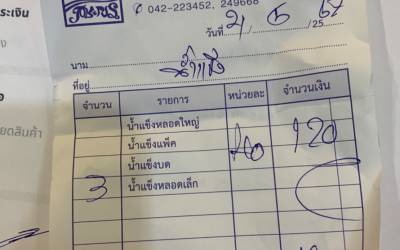 ระเงิน
042-223452, 249668
วันที่ 21 / 6 / 25 67
นาม น้ำแข็ง
ที่อยู่
จำนวน รายการ หน่วยละ จำนวนเงิน
น้ำแข็งหลอดใหญ่
น้ำแข็งแพ็ค 40 120
น้ำแข็งบด
3 น้ำแข็งหลอดเล็ก
ยดสินค้า